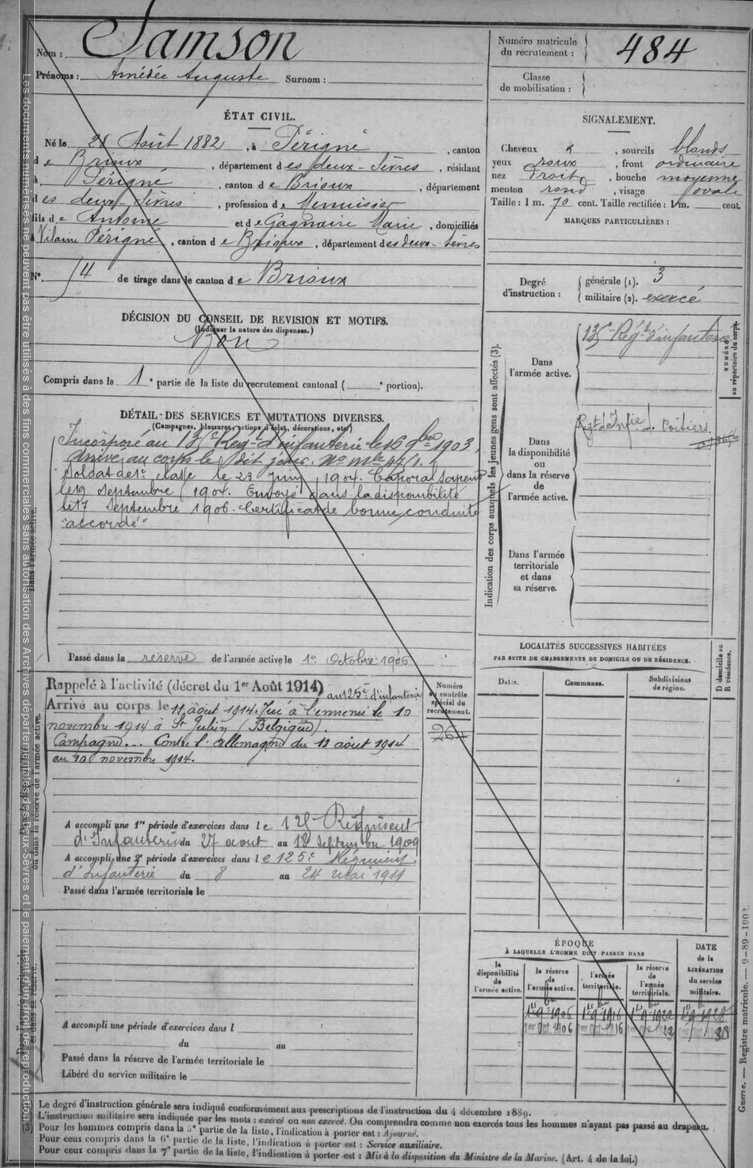 Nom : Samson
Prénoms : Amédée Auguste Surnom :
Numéro matricule du recrutement : 484
Classe de mobilisation :
ÉTAT CIVIL.
Né le 28 Août 1882, à Périgné, canton
de Brioux, département des deux-Sèvres, résidant
à Périgné, canton de Brioux, département
des deux Sèvres, profession de Menuisier
fils de Antoine et de Gagnaire Marie, domiciliés
à Périgné, canton de Brioux, département des deux-Sèvres
N° 54 de tirage dans le canton de Brioux
SIGNALEMENT.
Cheveux &, sourcils blonds
yeux roux, front ordinaire
nez Droit, bouche moyenne
menton rond, visage ovale
Taille : 1 m. 70 cent. Taille rectifiée : 1 m. cent.
MARQUES PARTICULIÈRES :
Degré d'instruction : générale (1). 3
militaire (2). exercé
DÉCISION DU CONSEIL DE REVISION ET MOTIFS.
(Indiquer la nature des dispenses.)
Bon
Compris dans la 1e partie de la liste du recrutement cantonal ( e portion).
DÉTAIL DES SERVICES ET MUTATIONS DIVERSES.
(Campagnes, blessures, actions d'éclat, décorations, etc.)
Incorporé au 125e Régt d'infanterie le 16 9bre 1903,
arrivé au corps le dit jour. No mle
Soldat de 1e classe le 23 Juin 1904. Caporal sapeur
le 19 Septembre 1904. Envoyé dans la disponibilité
le 17 Septembre 1906. Certificat de bonne conduite
"accordé"
Passé dans la réserve de l'armée active le 1er Octobre 1906
Rappelé à l'activité (décret du 1er Août 1914) au 125e d'infanterie
Arrivé au corps le 11 août 1914. Tué à l'ennemi le 10
novembre 1914 à St Julien (Belgique).
Campagne... Contre l'Allemagne du 11 août 1914
au 10 novembre 1914.
Numéro au contrôle spécial du recrutement.
264
A accompli une 1re période d'exercices dans le 125e Régiment
d'Infanterie du 27 aout au 12 septembre 1909
A accompli une 2e période d'exercices dans le 125e Régiment
d'Infanterie du 8 au 24 mai 1911
Passé dans l'armée territoriale le
A accompli une période d'exercices dans l
du au
Passé dans la réserve de l'armée territoriale le
Libéré du service militaire le
Indication des corps auxquels les jeunes gens sont affectés (3).
Dans l'armée active.
125e Régt d'infanterie
NUMÉROS au répertoire du corps.
Dans la disponibilité ou dans la réserve de l'armée active.
Régt d'Infie de Poitiers
Dans l'armée territoriale et dans sa réserve.
LOCALITÉS SUCCESSIVES HABITÉES
PAR SUITE DE CHANGEMENTS DE DOMICILE OU DE RÉSIDENCE.
Dates. Communes. Subdivisions de région. D domicile ou R résidence.
ÉPOQUE
À LAQUELLE L'HOMME DOIT PASSER DANS
la disponibilité de l'armée active.
la réserve de l'armée active.
l'armée territoriale.
la réserve de l'armée territoriale.
DATE de la LIBÉRATION du service militaire.
Dans l'armée active.
ou dans la réserve de l'armée active.
et dans sa réserve.
Les documents numérisés ne peuvent pas être utilisés à des fins commerciales sans autorisation des Archives départementales des Deux-Sèvres et le paiement d'un droit de reproduction
Guerre. — Registre matricule. — 9-89-1902.
Le degré d'instruction générale sera indiqué conformément aux prescriptions de l'instruction du 4 décembre 1889.
L'instruction militaire sera indiquée par les mots : exercé ou non exercé. On comprendra comme non exercés tous les hommes n'ayant pas passé au drapeau.
Pour les hommes compris dans la 5e partie de la liste, l'indication à porter est : Ajourné.
Pour ceux compris dans la 6e partie de la liste, l'indication à porter est : Service auxiliaire.
Pour ceux compris dans la 7e partie de la liste, l'indication à porter est : Mis à la disposition du Ministre de la Marine. (Art. 4 de la loi.)